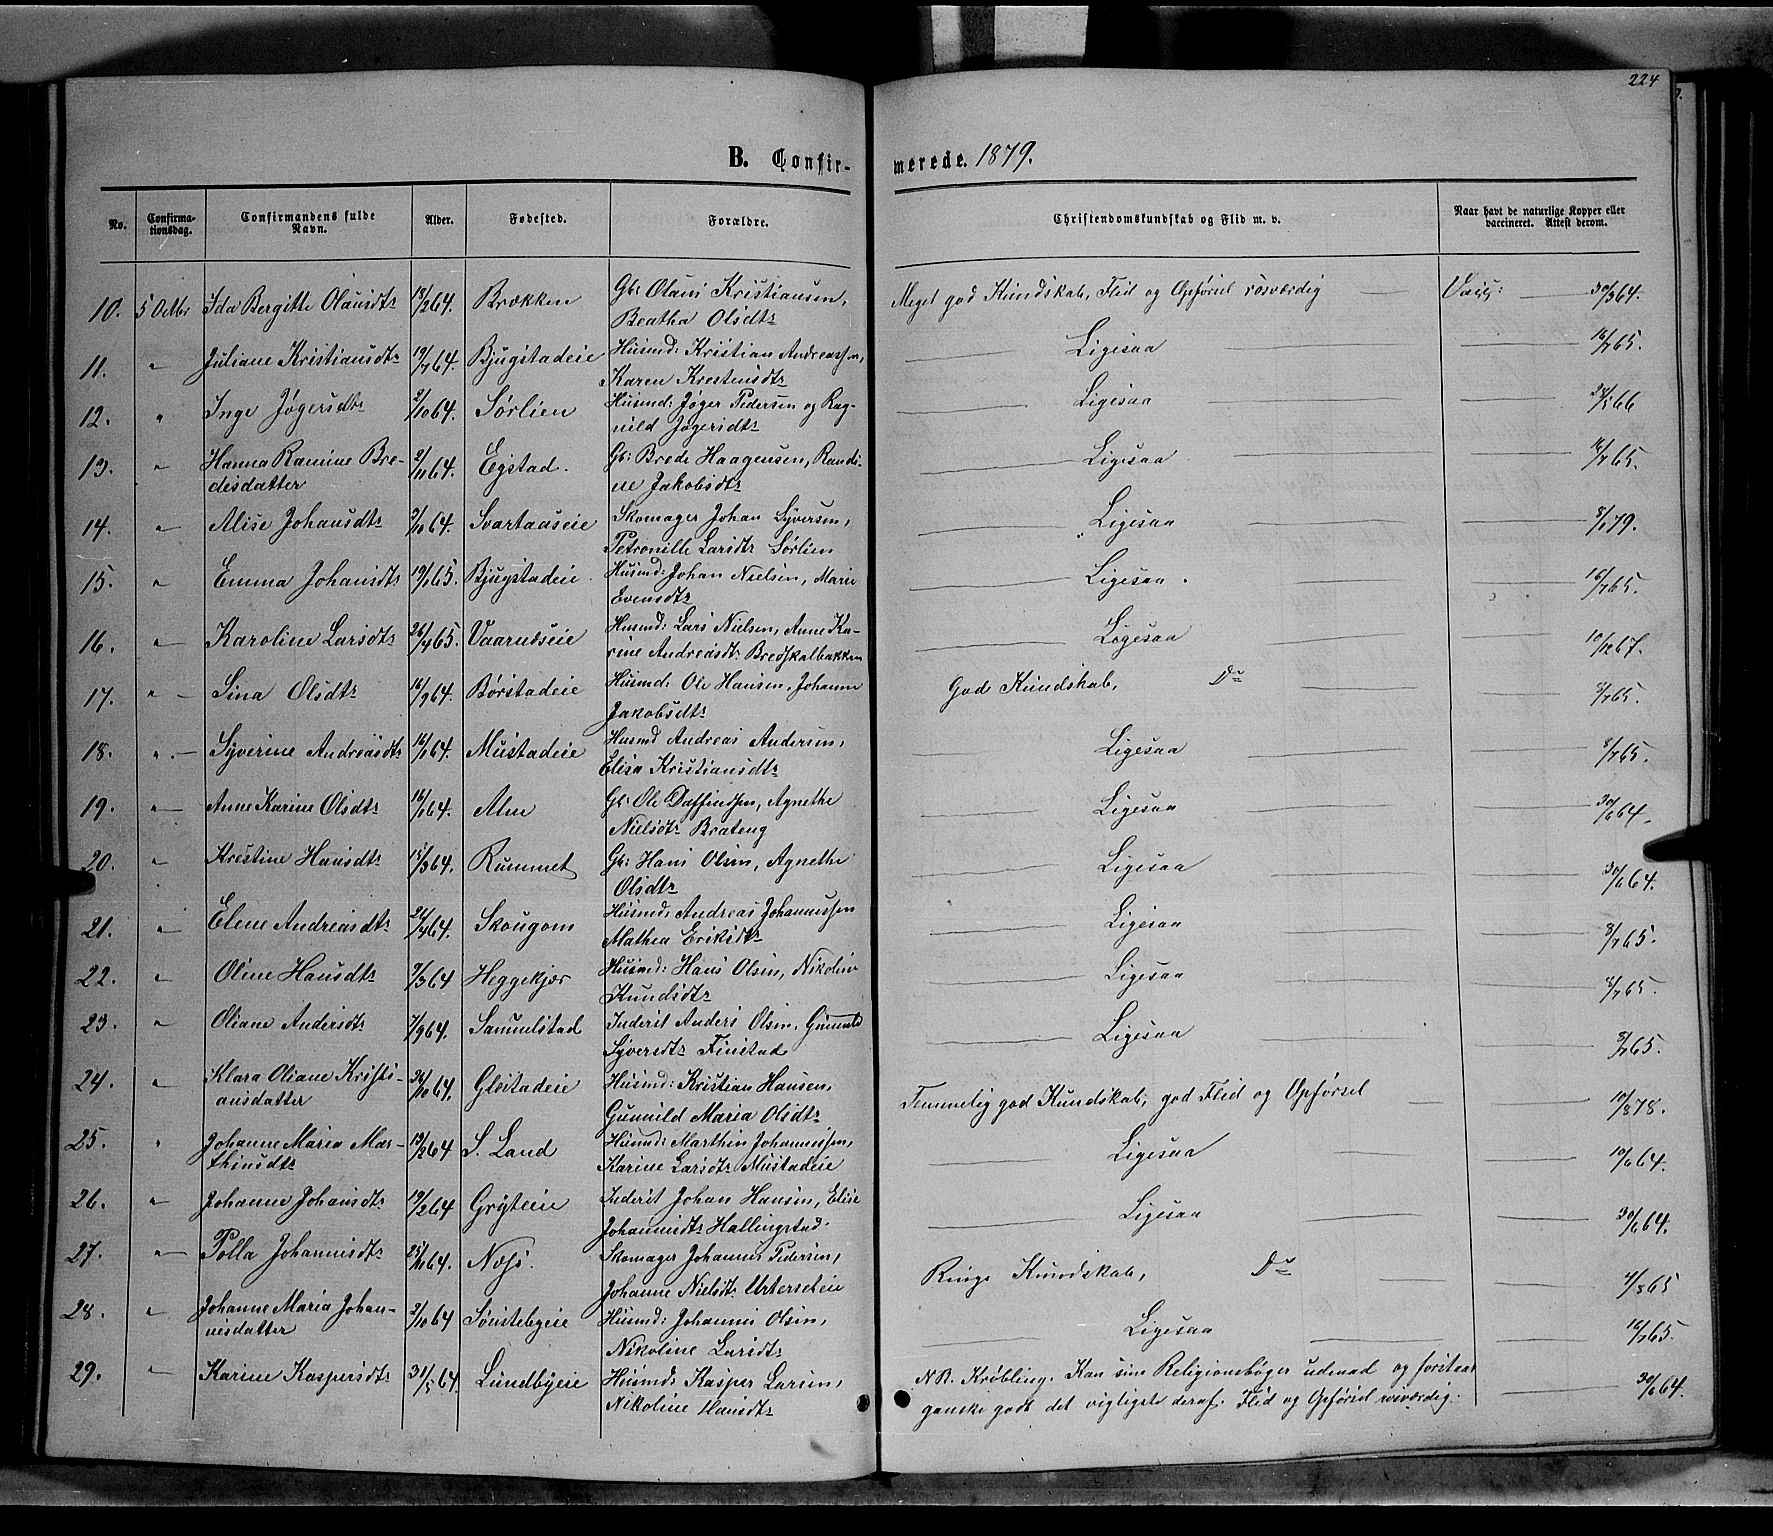 224
B. Confir- merede. 1879.
No. Confirma-tionsdag. Confirmandens fulde Navn. Alder. Fødested. Forældre. Christendomskundskab og Flid m. v. Naar havt de naturlige Kopper eller vaccineret. Attest derom.
10. 5 Octbr Ida Bergitte Olausdtr 18/2 64. Brækken Gbr Olaus Kristiansen, Meget god Kundskab, Flid og Opførsel rosværdig Vacc: 30/3 64.
Beatha Olsdtr
11. " Juliane Kristiansdtr 19/7 64. Bjugstadeie Husmd: Kristian Andreassen, Ligesaa 16/7 65.
Karen Krestensdtr
12. " Inge Jøgersdtr 2/10 64. Sørlien Husmd: Jøger Pedersen og Rag- Ligesaa 24/5 66
nild Jøgersdtr
13. " Hanna Ramine Bre- 2/11 64. Egstad. Gbr: Brede Haagensen, Randi- Ligesaa 16/7 65.
desdatter ne Jakobsdtr
14. " Alise Johansdtr 64. Svartaaseie Skomager Johan Syversen, Ligesaa 8/1 79.
Petronille Larsdtr Sørlien
15. " Emma Johansdtr 19/1 65. Bjugstadeie. Husmd: Johan Nielsen, Marie Ligesaa. 16/7 65.
Evensdtr
16. " Karoline Larsdtr 26/4 65. Vaarudseie Husmd: Lars Nielsen, Anne Ka- Ligesaa 10/12 67.
rine Andreasdtr Bredskalbakken
17. " Sina Olsdtr 16/9 64. Børstadeie Husmd: Ole Hansen, Johanne God Kundskab, Do 8/7 65.
Jakobsdtr
18. " Syverine Andreasdtr 16/1 64. Mustadeie Husmd Andreas Andersen, Ligesaa 8/7 65.
Elisa Kristiansdtr
19. " Anne Karine Olsdtr 16/1 64. Alm Gbr: Ole Daffindsen, Agnethe Ligesaa 30/6 64.
Nielsdtr Brateng
20. " Krestine Hansdtr 15/3 64. Rummet Gbr: Hans Olsen, Agnethe Ligesaa 30/6 64.
Olsdtr
21. " Elene Andreasdtr 24/4 64. Skougom Husmd: Andreas Johannessen Ligesaa 8/7 65.
Mathea Eriksdtr
22. " Oline Hansdtr 7/3 64 Heggekjær Husmd: Hans Olsen, Nikoline Ligesaa 8/7 65.
Knudsdtr
23. " Oliane Andersdtr 7/9 64. Samuelstad Inderst Anders Olsen, Gunnild Ligesaa 8/7 65.
Syversdtr Finstad
24. " Klara Oliane Kristi- 26/10 64. Glæstadeie Husmd: Kristian Hansen, Temmelig god Kundskab, god Flid og Opførsel 10/8 78.
ansdatter Gunnild Maria Olsdtr
25. " Johanne Maria Mar- 19/2 64 S. Land Husmd: Marthin Johannessen, Ligesaa 10/6 64.
thinsdtr Karine Larsdtr Mustadeie
26. " Johanne Johansdtr 19/2 64 Gryteeie Inderst Johan Hansen, Elise Ligesaa 30/6 64.
Johannesdtr Hallingstad.
27. " Polla Johannesdtr 25/11 64. Næss. Skomager Johannes Pedersen, Ringe Kundskab, Do 4/8 65
Johanne Nielsdtr
28. " Johanne Maria Johan- 2/10 64 Sønstebyeie Husmd: Johannes Olsen, Ligesaa 16/7 65.
nesdatter Nikoline Larsdtr
29. " Karine Kaspersdtr 31/5 64. Lundbyeie Husmd: Kasper Larsen, NB. Krøbling. Kan sine Religionsbøger udenad og forstaar 30/6 64.
Nikoline Hansdtr ganske godt det vigtigste deraf. Flid og Opførsel rosværdig.